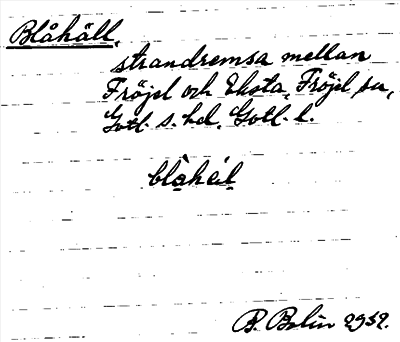 Blåhäll,
strandremsa mellan
Fröjel och Eksta, Fröjel sn,
Gotl. s. hd, Gotl. l.
B. Bolin 1959.